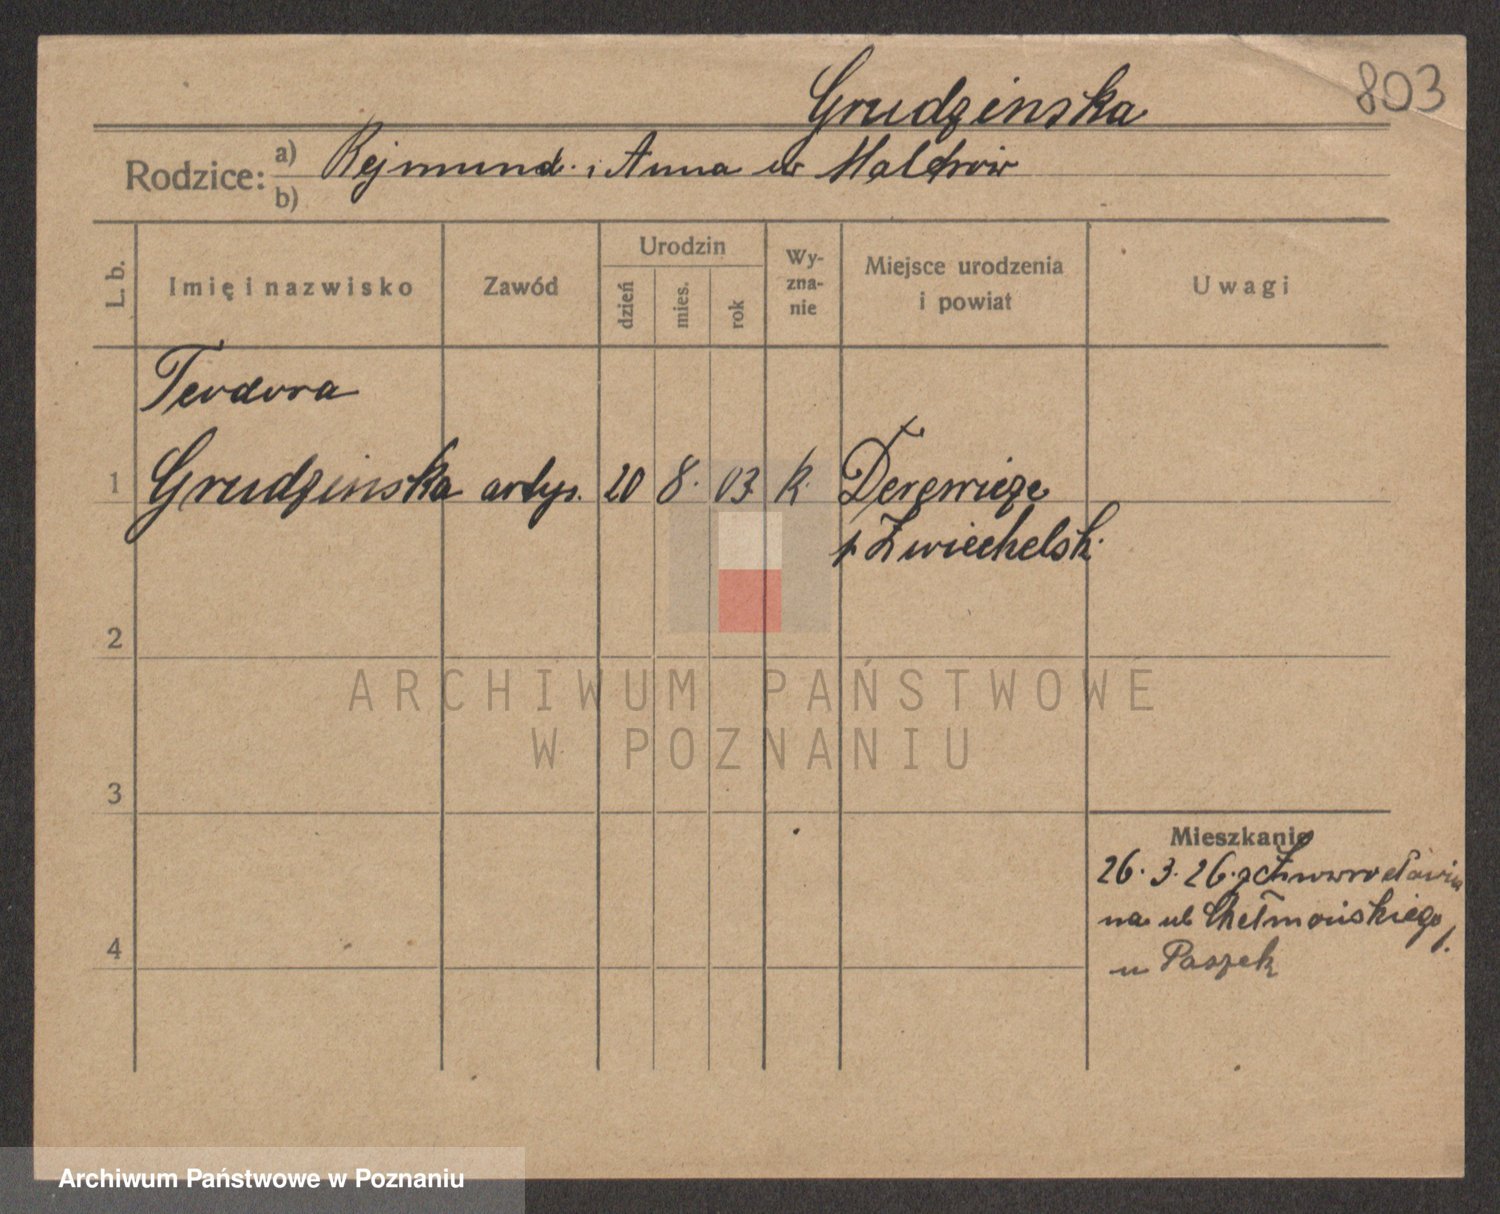 Grudzinska
803
Rodzice:
a) Rejmund i Anna
b)
L. b.
Imię i nazwisko
Zawód
Urodzin
dzień
mies.
rok
Wy-
zna-
nie
Miejsce urodzenia
i powiat
Uwagi
Teodora
1 Grudzinska artys. 20 8. 03 k. Derewicze
p. Zwiechelsk.
2
3
4
Mieszkanie
26. 3. 26. z
na ul Chełmońskiego
u Paszek
ARCHIWUM PAŃSTWOWE
W POZNANIU
Archiwum Państwowe w Poznaniu